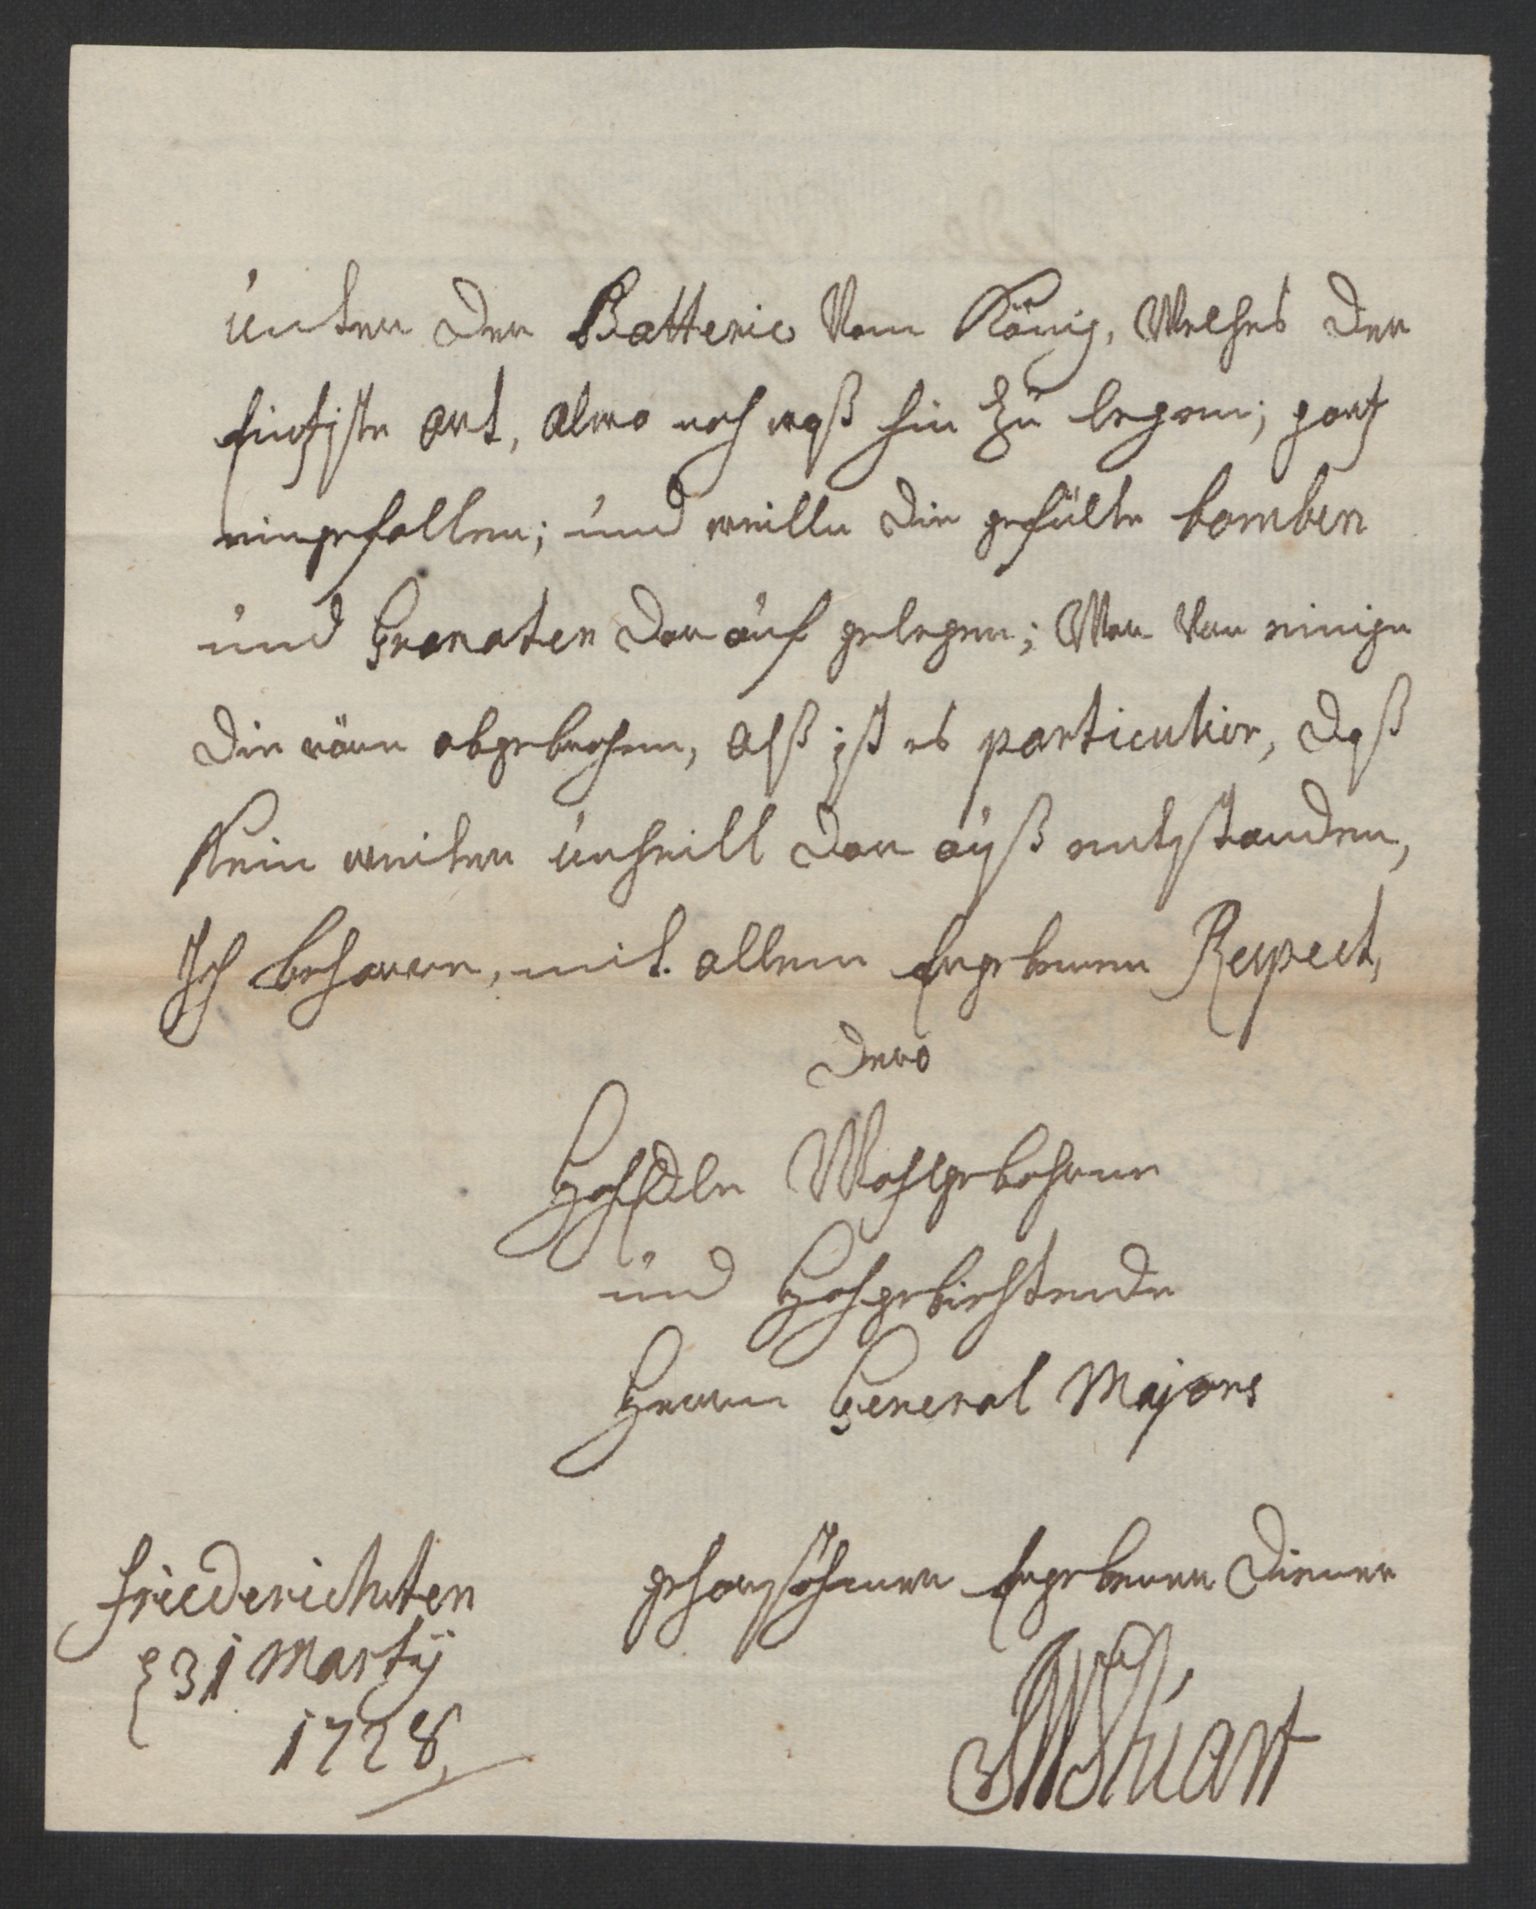 unter der Batterie vom König, welches der
eintzigste ort, alwo noch waß hin zu legen; gantz
eingefallen; und weillen die gefülte bomben
und Granaten dar auf gelegen; War von einigen
die rören abgebrochen, alß ist es particulier, daß
Kein weiter unheill dar auß entstanden,
Ich beharre, mit allem Ergebenen Respect,
dero
HochEdle Wohlgebohrne
und Hochgebiehtende
Herrn General Majors
gehorsahmer Ergebener Diener
Friederichsten
31 Martÿ
1728,
Stuart